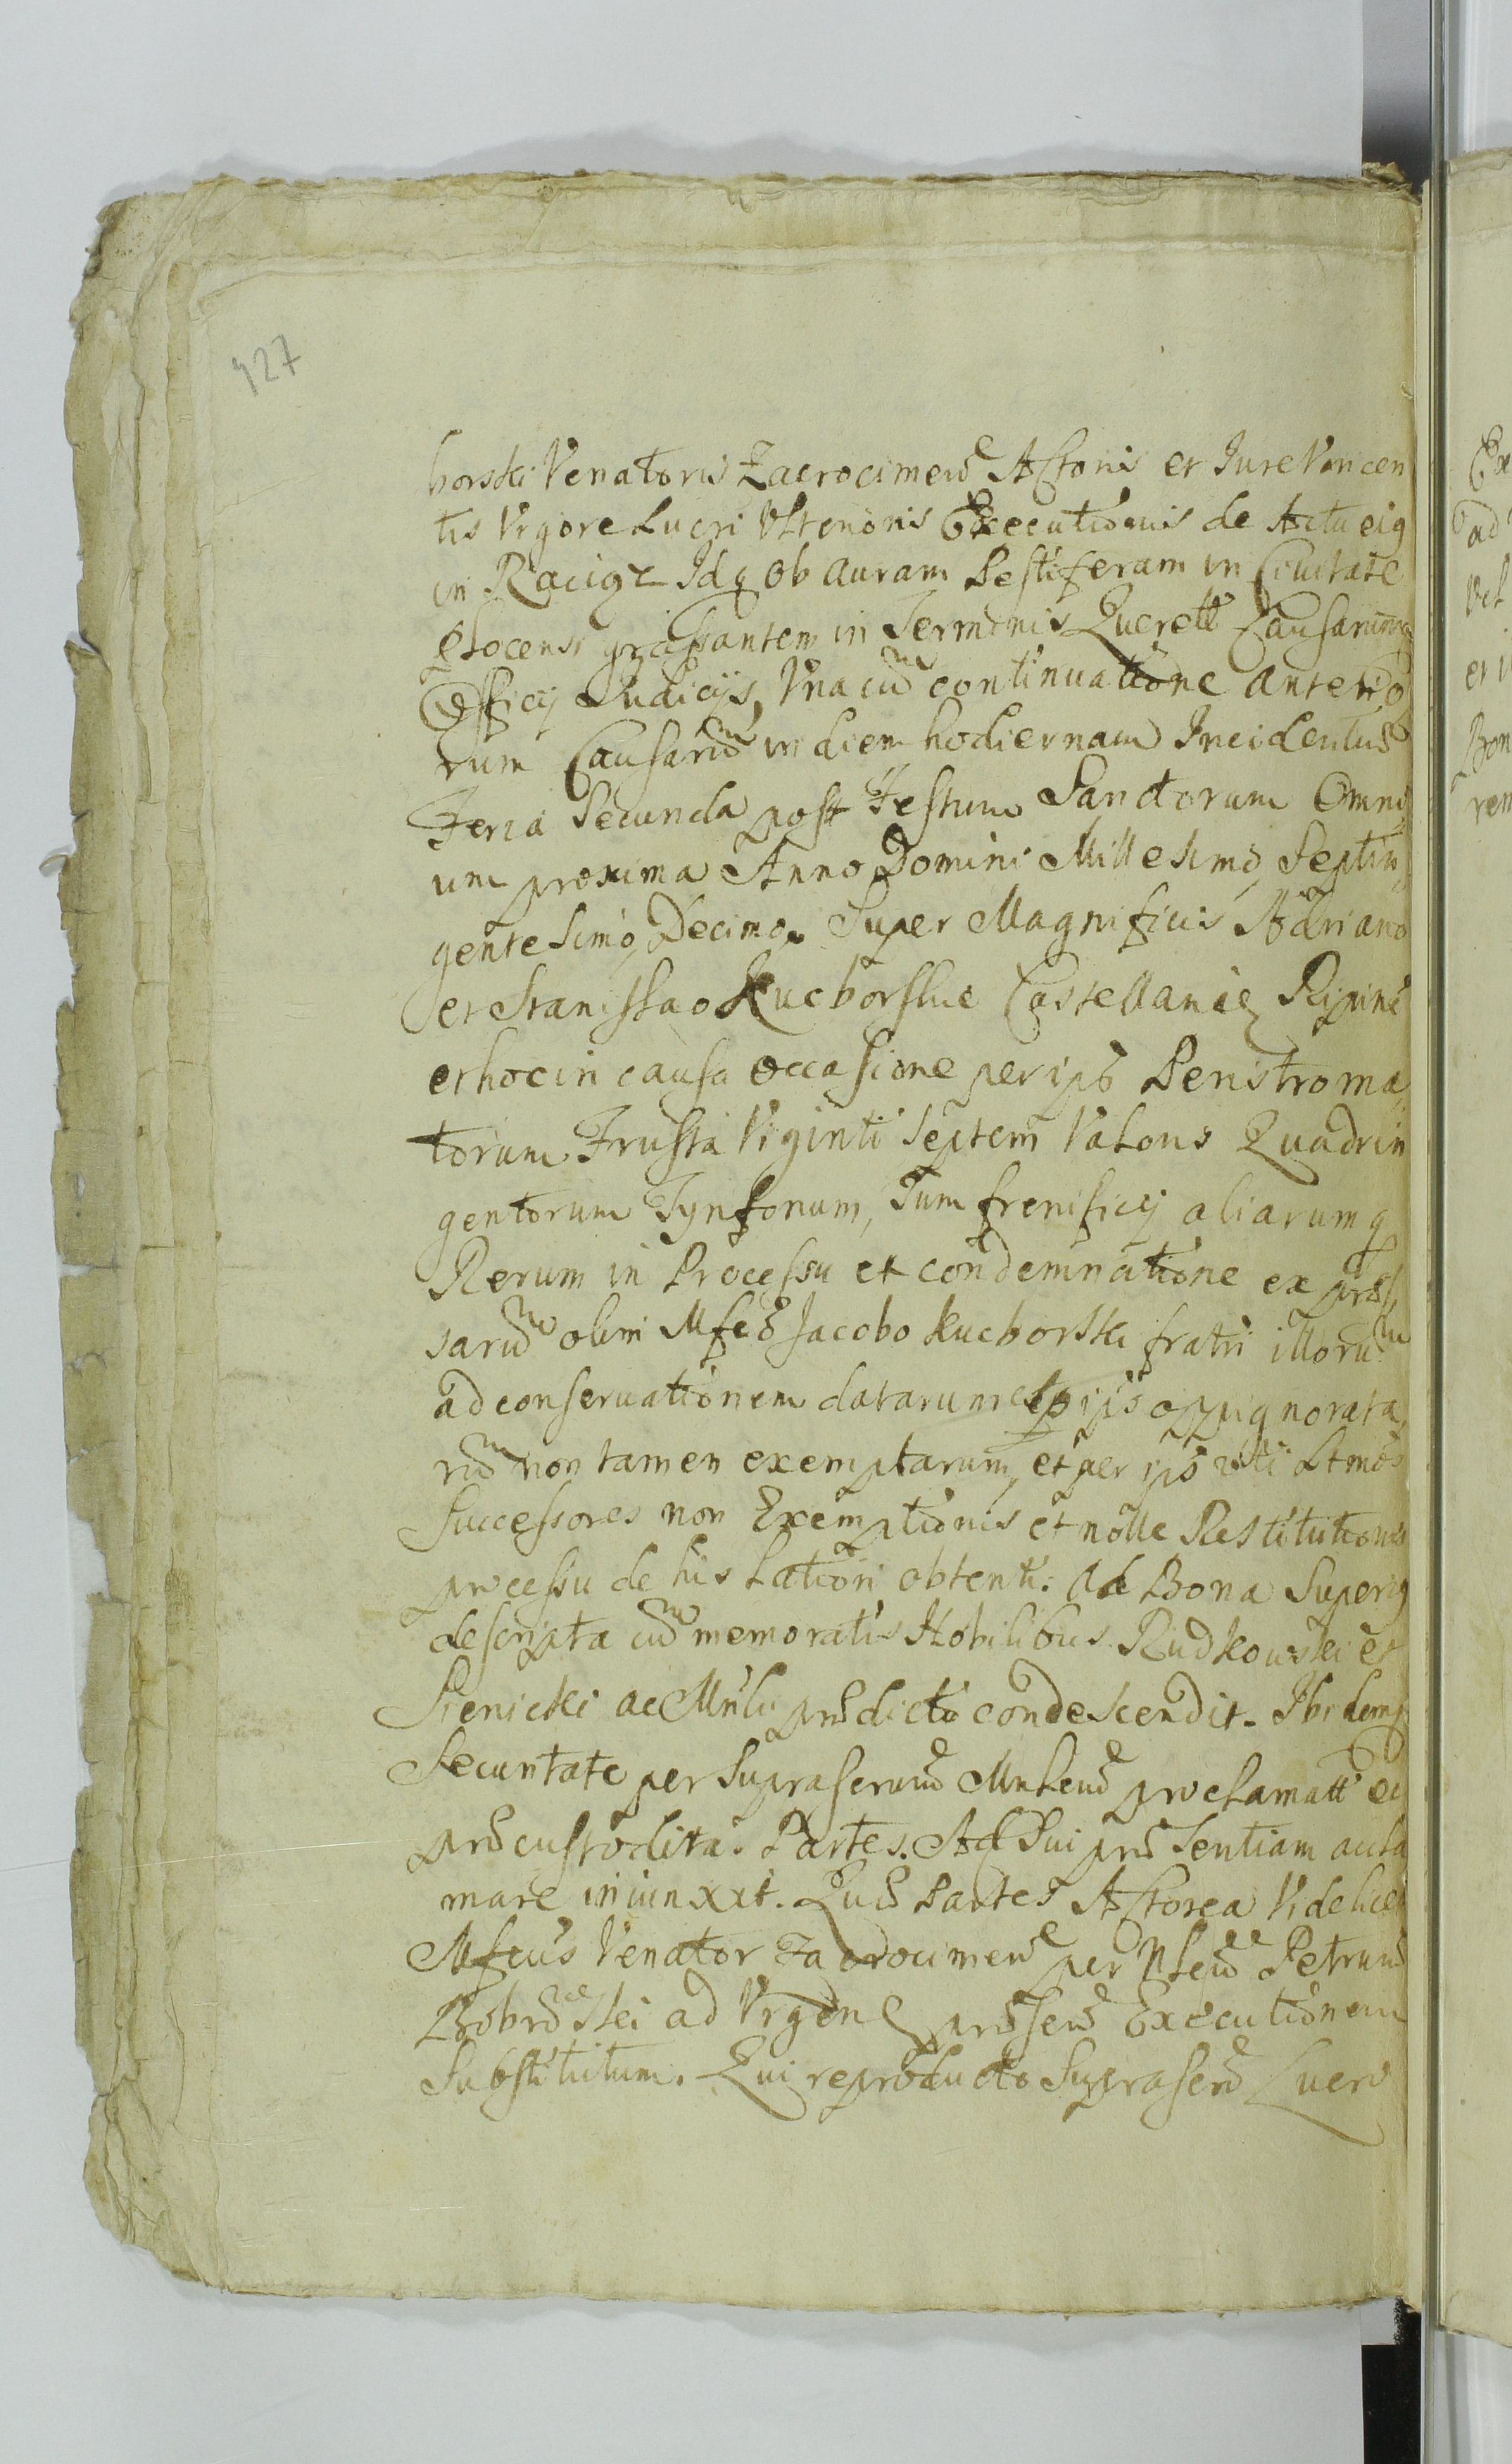 427
horski Venatoris Zacrocimen̄ Actoris et Iure Vincen
tis Vigore Lucri Ulterioris Executionis de Actu eiq
in Raciąz Idq ob auram Pestiferam in Civitate
Plocensi grassantem in Terminis Querell Causarumq
Officij Iudicijs, Vna cum continuatione anterio
rum Causarum in diem hodiernam Incidentium
Feria Secunda post Festum Sanctorum Omni
um proxima Anno Domini Millesimo Septin
gentesimo Decimo. Super Magnificis Adriano
et Stanislao Kucborskie Castellanie Ripine
et hoc in causa occasione per ips Peristroma
torum Frusta Viginti Septem Valoris Quadrin
gentorum Tynfonum, Tum frenificij aliarumq
Rerum in Processu et condemnatione expres
sarum olim Mfco Jacobo Kucborski fratri illorum
ad conservationem datarum et p ips oppignorata
rum non tamen exemptarum, et per ips uti
Successores non Exemptionis et nolle Restitutionis
processu de his latiori obtenti. Ad Bona Superiq
descripta cum memoratis Nobilibus Rudkowski et
Sienicki ac Mnlı prædicti condescendit. Ibidemq
Securitate per Suprascrium proclamatt et
præcustodita. Partes. Ad Sui præsentiam accla
mare iniunxit. Quæ Partes Actorea Videlicet
Mfcus Venator Zacrocimen̄ per Petrum
ad Vrgen præsen Executionem
Substitutum. Qui reproducto Suprascr Lucro
Ex
ad
Vel
et
Bon
rem